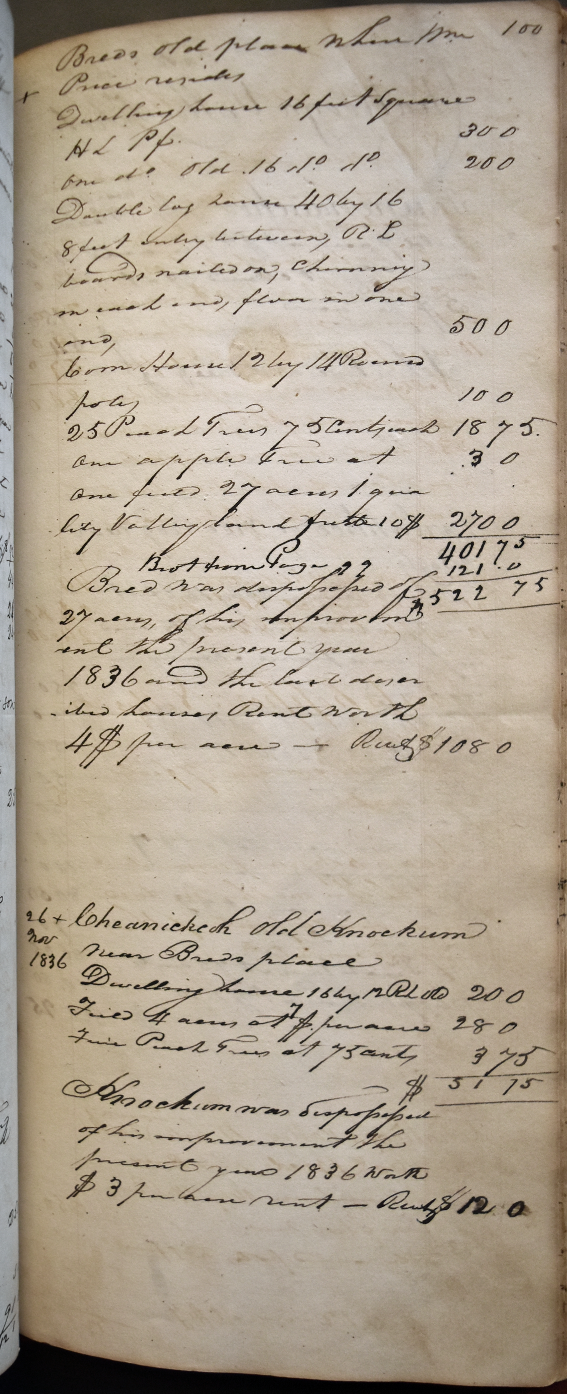 Breds old place where Wm 100
+ Price resides
Dwelling house 16 feet Square
H L Pf. 30 0
one do Old 16 do do 20 0
Double log house 40 by 16
8 feet entry between, R L
boards nailed on, Chimney
in each end, floor in one
end, 50 0
Corn House 12 by 14 Round
poles 10 0
25 Peach Trees 75 Cents each 18 75
one apple tree at 3 0
one field 27 acres 1 qua
lity Valley land 10$ 270 0
401 75
Brot from Page 99 121 0
Bred was dispossessed of $522 75
27 acres, of his improvem
ent the present year
1836 and the last descr
ibed houses Rent worth
4$ per acre — Rent $108 0
26 + Cheanickeh old Knockum
Nov near Breds place
1836
Dwelling house 16 by 12 R L do 20 0
Field 4 acres at 7$ per acre 28 0
Five Peach Trees at 75 cents 3 75
$ 51 75
Knockum was dispossessed
of his improvement the
present year 1836 Worth
$ 3 per acre rent — Rent $ 12 0